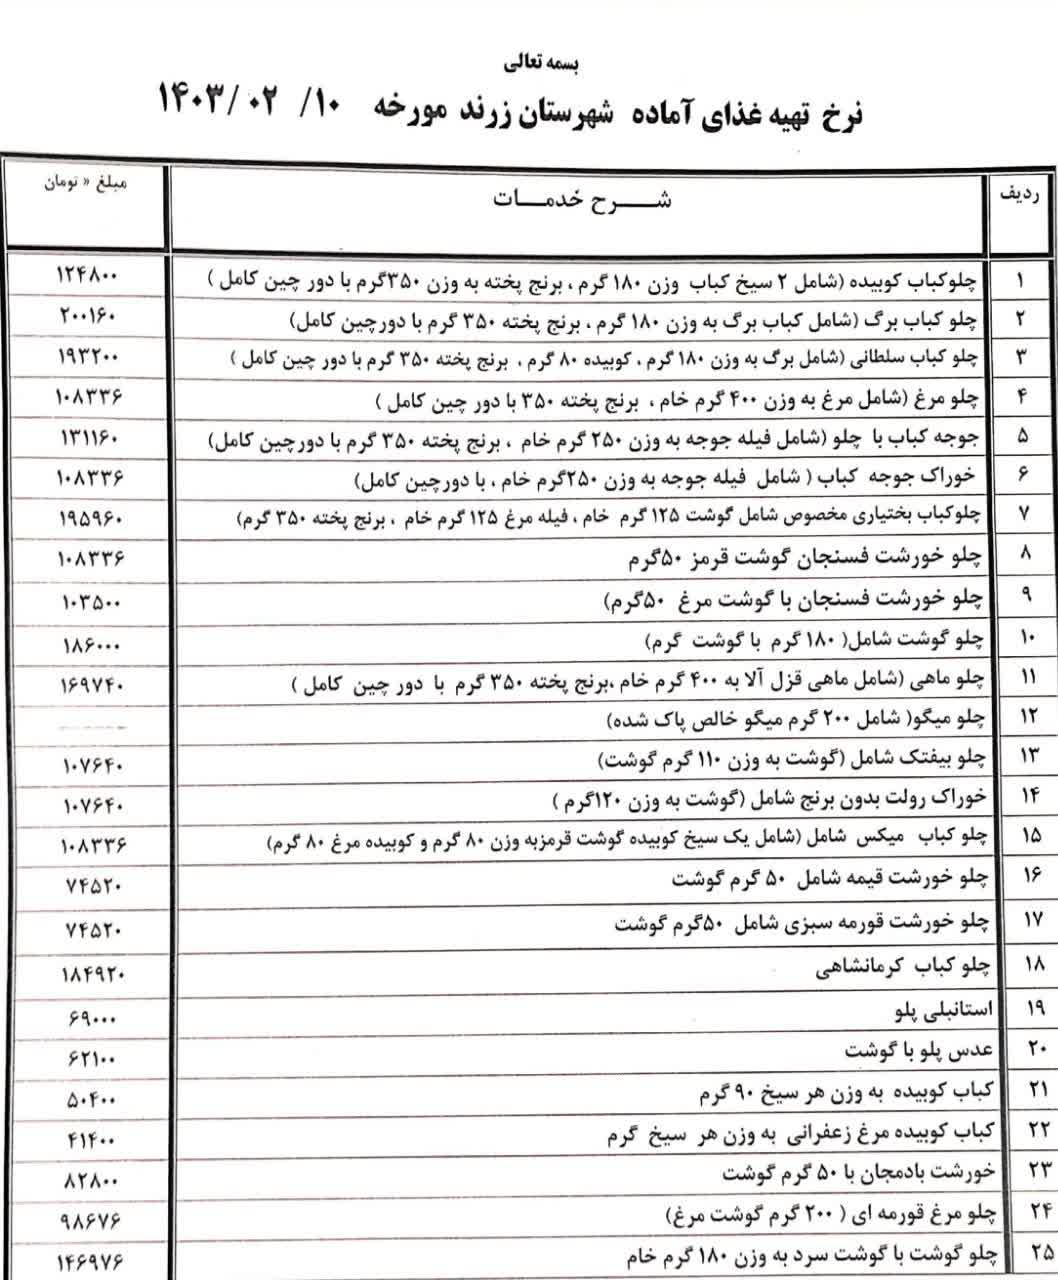 بسمه تعالی
نرخ تهیه غذای آماده شهرستان زرند مورخه ۱۴۰۳/۰۲/۱۰
ردیف شــــرح خدمـــات مبلغ « تومان
۱ چلوکباب کوبیده (شامل ۲ سیخ کباب وزن ۱۸۰ گرم ، برنج پخته به وزن ۳۵۰گرم با دور چین کامل ) ۱۲۴۸۰۰
۲ چلو کباب برگ (شامل کباب برگ به وزن ۱۸۰ گرم ، برنج پخته ۳۵۰ گرم با دورچین کامل) ۲۰۰۱۶۰
۳ چلو کباب سلطانی (شامل برگ به وزن ۱۸۰ گرم ، کوبیده ۸۰ گرم ، برنج پخته ۳۵۰ گرم با دور چین کامل ) ۱۹۳۲۰۰
۴ چلو مرغ (شامل مرغ به وزن ۴۰۰ گرم خام ، برنج پخته ۳۵۰ با دور چین کامل ) ۱۰۸۳۳۶
۵ جوجه کباب با چلو (شامل فیله جوجه به وزن ۲۵۰ گرم خام ، برنج پخته ۳۵۰ گرم با دورچین کامل) ۱۳۱۱۶۰
۶ خوراک جوجه کباب ( شامل فیله جوجه به وزن ۲۵۰گرم خام ، با دورچین کامل) ۱۰۸۳۳۶
۷ چلوکباب بختیاری مخصوص شامل گوشت ۱۲۵ گرم خام ، فیله مرغ ۱۲۵ گرم خام ، برنج پخته ۳۵۰ گرم) ۱۹۵۹۶۰
۸ چلو خورشت فسنجان گوشت قرمز ۵۰گرم ۱۰۸۳۳۶
۹ چلو خورشت فسنجان با گوشت مرغ ۵۰گرم) ۱۰۳۵۰۰
۱۰ چلو گوشت شامل( ۱۸۰ گرم با گوشت گرم) ۱۸۶۰۰۰
۱۱ چلو ماهی (شامل ماهی قزل آلا به ۴۰۰ گرم خام ،برنج پخته ۳۵۰ گرم با دور چین کامل ) ۱۶۹۷۴۰
۱۲ چلو میگو( شامل ۲۰۰ گرم میگو خالص پاک شده) ————
۱۳ چلو بیفتک شامل (گوشت به وزن ۱۱۰ گرم گوشت) ۱۰۷۶۴۰
۱۴ خوراک رولت بدون برنج شامل (گوشت به وزن ۱۲۰گرم ) ۱۰۷۶۴۰
۱۵ چلو کباب میکس شامل (شامل یک سیخ کوبیده گوشت قرمزبه وزن ۸۰ گرم و کوبیده مرغ ۸۰ گرم) ۱۰۸۳۳۶
۱۶ چلو خورشت قیمه شامل ۵۰ گرم گوشت ۷۴۵۲۰
۱۷ چلو خورشت قورمه سبزی شامل ۵۰گرم گوشت ۷۴۵۲۰
۱۸ چلو کباب کرمانشاهی ۱۸۴۹۲۰
۱۹ استانبلی پلو ۶۹۰۰۰
۲۰ عدس پلو با گوشت ۶۲۱۰۰
۲۱ کباب کوبیده به وزن هر سیخ ۹۰ گرم ۵۰۴۰۰
۲۲ کباب کوبیده مرغ زعفرانی به وزن هر سیخ گرم ۴۱۴۰۰
۲۳ خورشت بادمجان با ۵۰ گرم گوشت ۸۲۸۰۰
۲۴ چلو مرغ قورمه ای ( ۲۰۰ گرم گوشت مرغ) ۹۸۶۷۶
۲۵ چلو گوشت با گوشت سرد به وزن ۱۸۰ گرم خام ۱۴۶۹۷۶